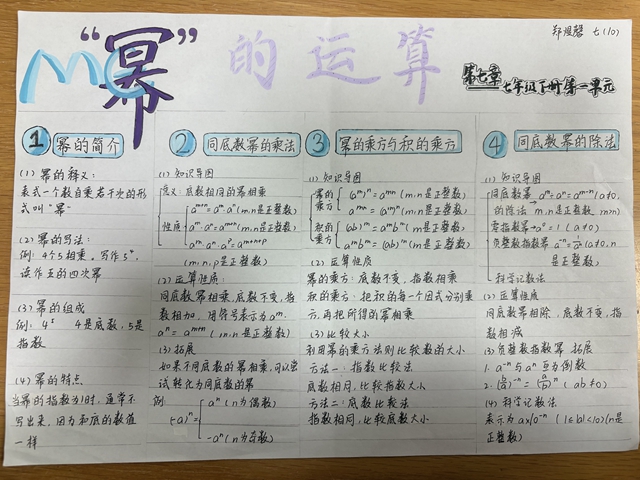 郑湼馨 七(10)
MC
“幂”的运算
第七章
七年级下册第一单元
① 幂的简介
(1) 幂的释义:
表式一个数自乘若干次的形
式叫“幂”
(2) 幂的写法:
例: 4个5相乘。写作5⁴,
读作五的四次幂
(3) 幂的组成
例: 4⁵ 4是底数, 5是
指数
(4) 幂的特点
当幂的指数为1时, 通常不
写出来, 因为和底的数值
一样
② 同底数幂的乘法
(1) 知识导图
定义: 底数相同的幂相乘
性质:
aᵐ⁺ⁿ=aᵐ·aⁿ(m.n是正整数)
aᵐ·aⁿ=aᵐ⁺ⁿ(m.n是正整数)
aᵐ·aⁿ·aᵖ=aᵐ⁺ⁿ⁺ᵖ
(m.n.p是正整数)
(2) 运算性质:
同底数幂相乘, 底数不变, 指
数相加, 用符号表示为aᵐ·
aⁿ=aᵐ⁺ⁿ(m.n是正整数)
(3) 拓展
如果不同底数的幂相乘, 可以尝
试转化为同底数的幂
例:
(-a)ⁿ=
aⁿ(n为偶数)
-aⁿ(n为奇数)
③ 幂的乘方与积的乘方
(1) 知识导图
幂的乘方
(aᵐ)ⁿ=aᵐⁿ(m.n是正整数)
aᵐⁿ=(aᵐ)ⁿ(m.n是正整数)
积的乘方
(ab)ᵐ=aᵐbᵐ(m是正整数)
aᵐbᵐ=(ab)ᵐ(m是正整数)
(2) 运算性质
幂的乘方: 底数不变, 指数相乘
积的乘方: 把积的每一个因式分别乘
方, 再把所得的幂相乘
(3) 比较大小
利用幂的乘方法则比较数的大小
方法一: 指数比较法
底数相同, 比较指数大小
方法二: 底数比较法
指数相同, 比较底数大小
④ 同底数幂的除法
(1) 知识导图
同底数幂 aᵐ÷aⁿ=aᵐ⁻ⁿ(a≠0,
的除法 m.n是正整数, m>n)
零指数幂→a⁰=1 (a≠0)
负整数指数幂 a⁻ⁿ=1/aⁿ(a≠0,n
是正整数)
科学记数法
(2) 运算性质
同底数幂相除, 底数不变, 指
数相减
(3) 负整数指数幂 拓展
1. a⁻ⁿ与aⁿ互为倒数
(4) 科学记数法
表示为a×10⁻ⁿ (1≤|a|<10)(n是
正整数)